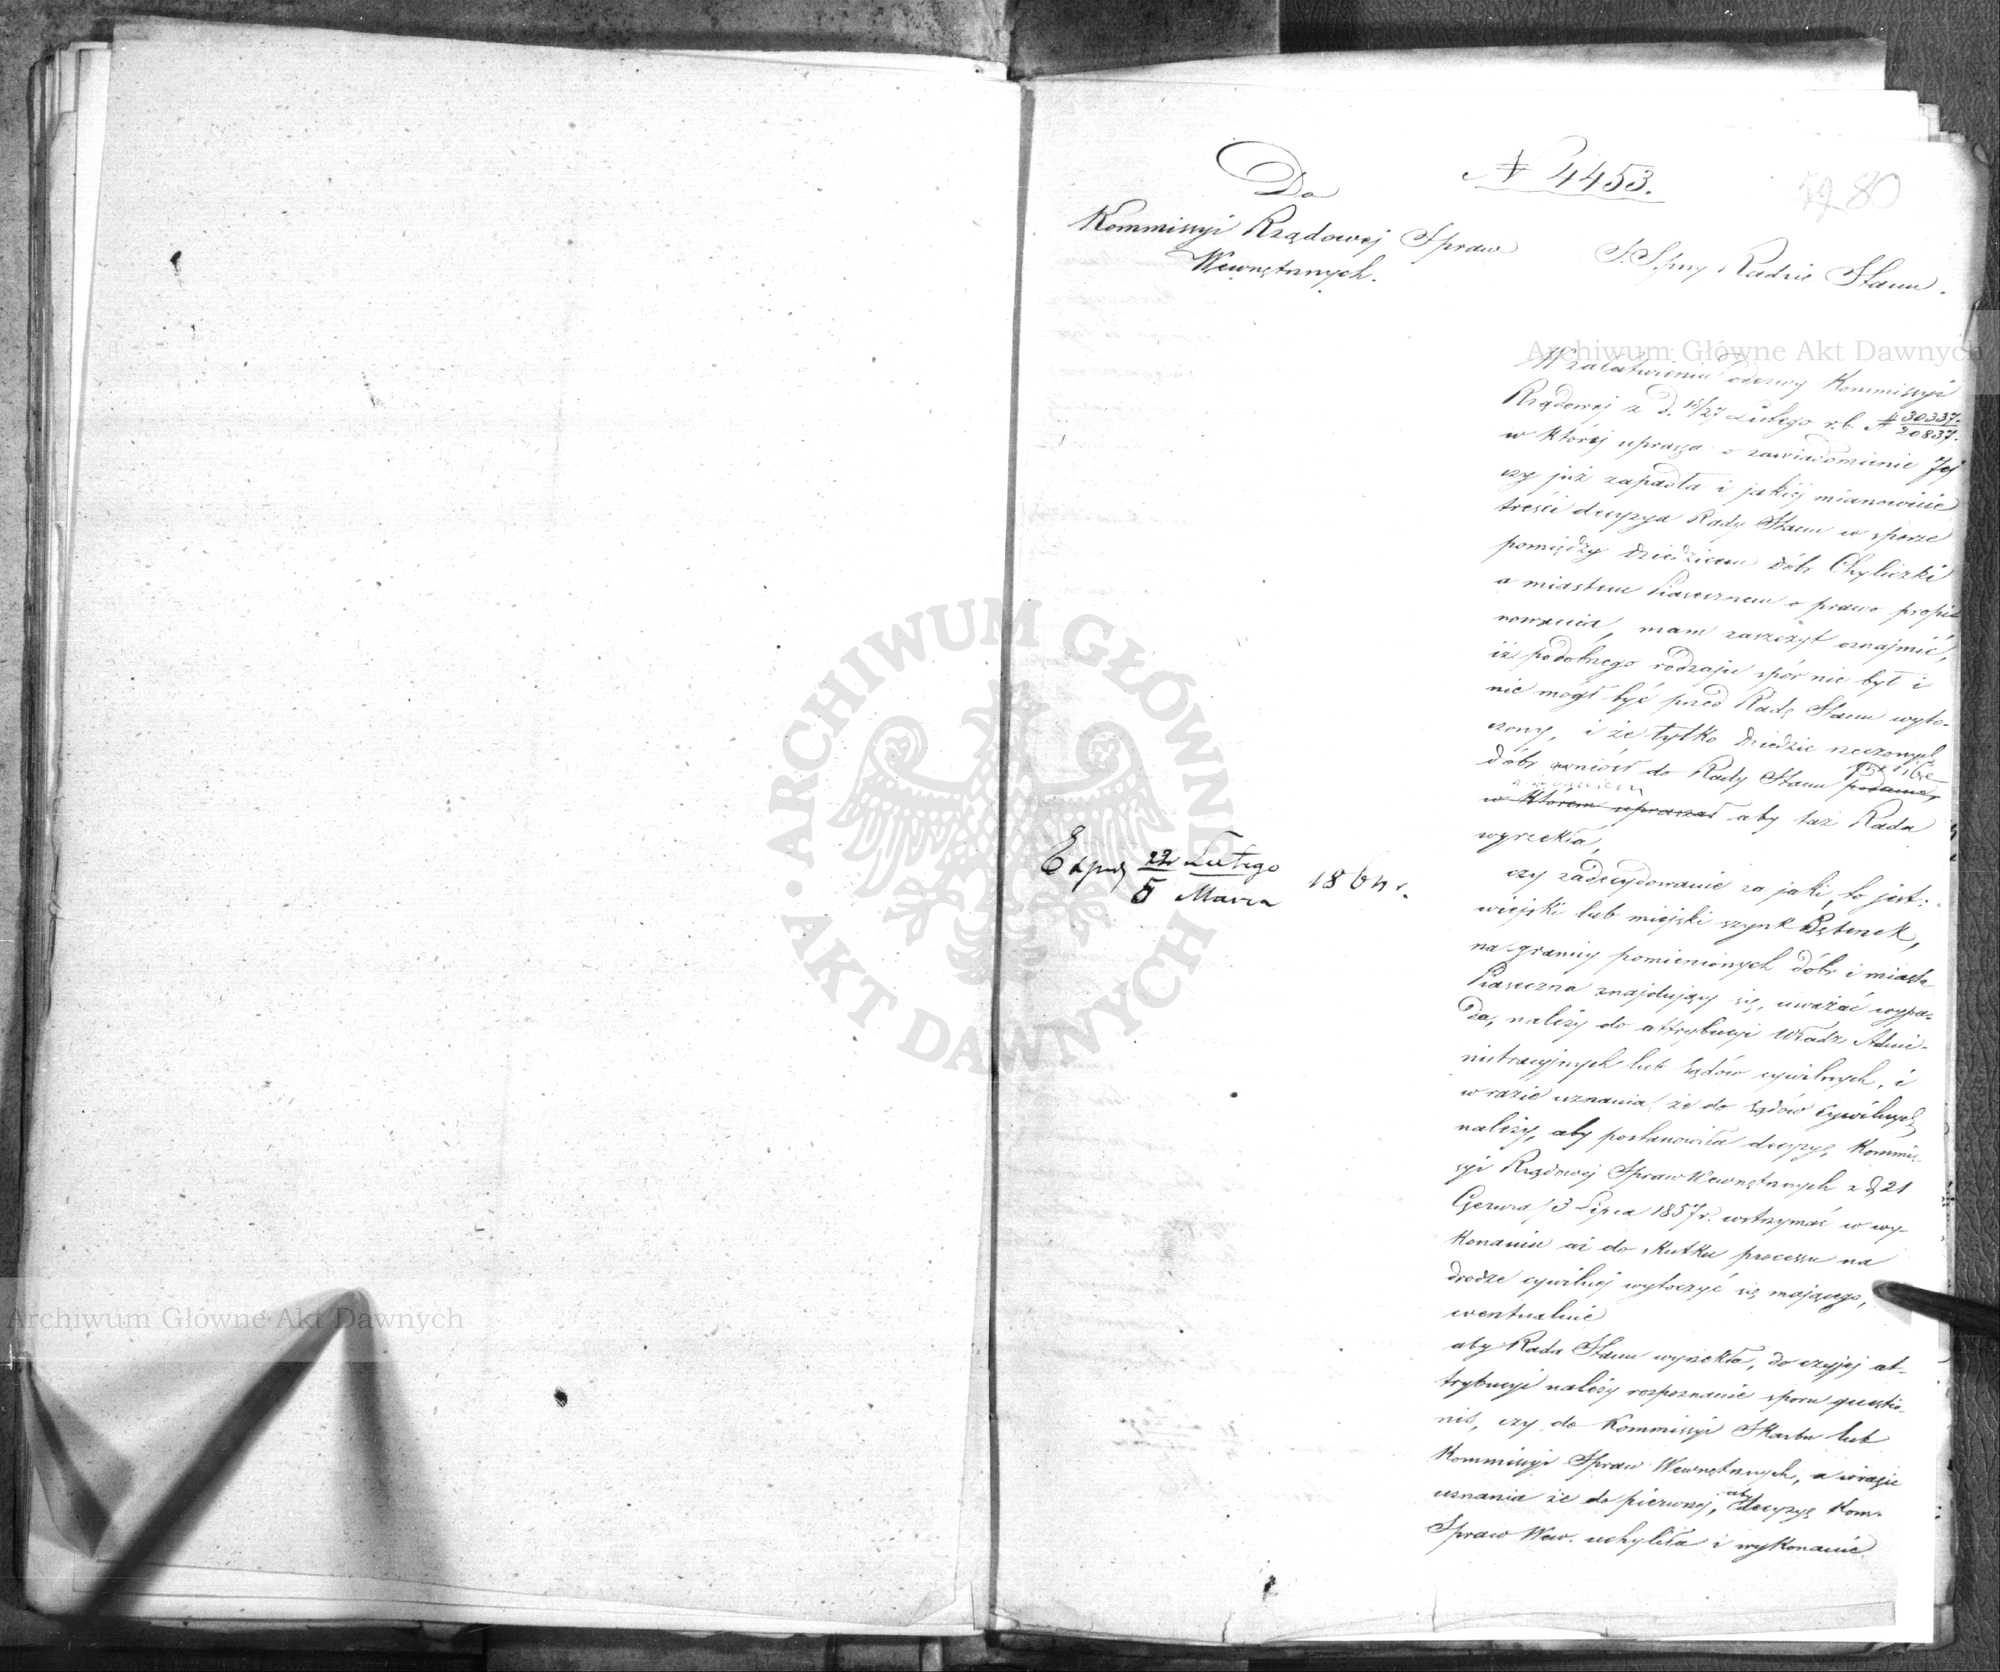 № 4453.
80
Do
Kommissyi Rządowej Spraw
Wewnętrznych.
S.S. przy Radzie Stanu.
W załatwieniu odezwy Kommissyi
Rządowej z d. 15/27 Lutego r.b. № 30337/20837.
w której uprasza o zawiadomienie Jej
czy już zapadła i jakiej mianowicie
treści decyzya Rady Stanu w sporze
pomiędzy dziedzicem dóbr Chyliczki
a miastem Piasecznem o prawo propi-
nowania, mam zaszczyt oznajmić,
iż podobnego rodzaju spór nie był i
nie mógł być przed Radę Stanu wyto-
czony, i że tylko dziedzic rzeczonych
dóbr wniósł do Rady Stanu prośbę
podanie,
w którem upraszał aby taż Rada
wyrzekła,
czy zadecydowanie za jaki, to jest:
wiejski lub miejski szynk Bętenek,
na granicy pomienionych dóbr i miasta
Piaseczna znajdujący się, uważać wypa-
da, należy do attrybucyi Władz Admi-
nistracyjnych lub Sądów cywilnych, i
w razie uznania że do Sądów Cywilnych
należy, aby postanowiła decyzyę Kommis-
syi Rządowej Spraw Wewnętrznych z d 21
Czerwca/3 Lipca 1857 r. wstrzymać w wy-
konaniu aż do skutku processu na
drodze cywilnej wytoczyć się mającego,
ewentualnie
aby Rada Stanu wyrzekła, do czyjej at-
trybucyi należy rozpoznanie sporu questio-
nis, czy do Kommissyi Skarbu lub
Kommissyi Spraw Wewnętrznych, a w razie
uznania że do pierwszej, aby decyzyę Kom.
Spraw Wew. uchyliła i wykonanie
Exped 22 Lutego
5 Marca 1864 r.
Archiwum Główne Akt Dawnych
Archiwum Główne Akt Dawnych
ARCHIWUM GŁÓWNE AKT DAWNYCH